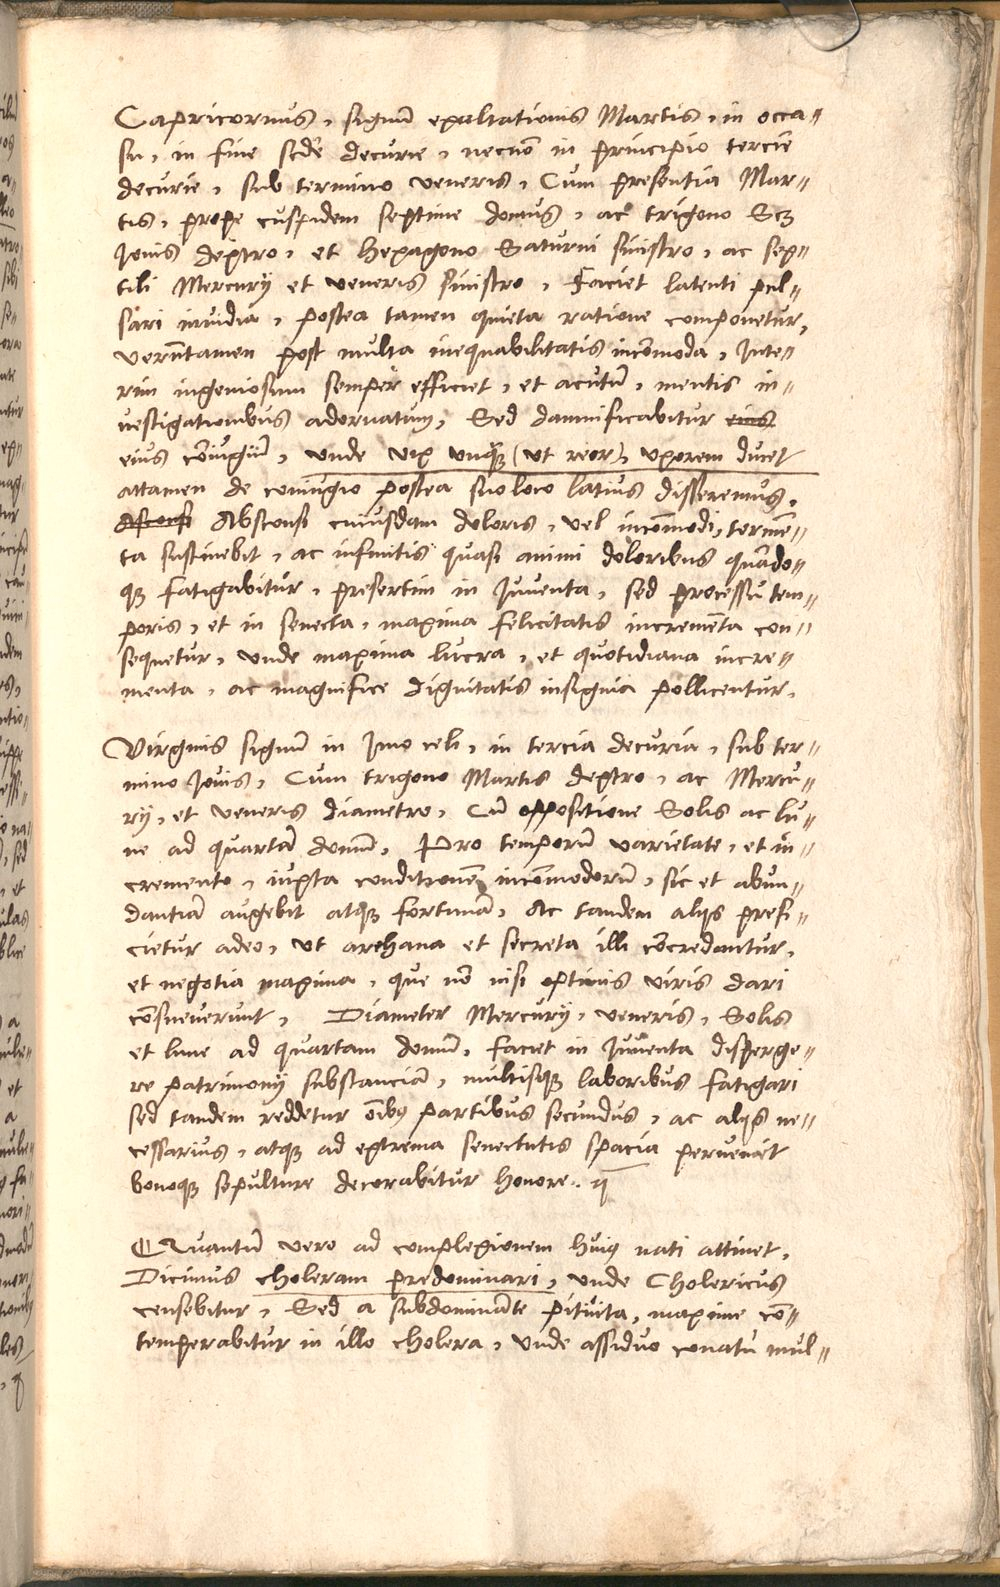 Capricornus, signũ exaltationis Martis, in occa=
su, in fine scd̃e decurie, necnõ in principio tercie
decurie, sub termino veneris, Cum presentia Mar=
tis, prope cuspidem septime domus, ac trigono Scꝫ
Jovis dextro, et hexagono Saturni sinistro, ac sex=
tili Mercurÿ et veneris sinistro, Faciet latenti pul=
sari invidia, postea tamen quieta ratione componetur,
verũtamen post multa inequabilitatis incõmoda, Inte=
rim ingeniosum semper efficiet, et acutũ, mentis in=
vestigationibus adornatum, Sed damnificabitur eius
eius cõiugiũ, unde vix unq̃ꝫ (ut reor), uxorem ducet
attamen de coniugio postea suo loco latius disseremus,
Absconsi Absconsi cuiusdam doloris, vel incõmodi, tormẽ=
ta sustinebit, ac infinitis quasi animi doloribus quãdo=
qꝫ fatigabitur, presertim in Juventa, sed processu tem=
poris, et in senecta, maxima felicitatis incremẽta con=
sequetur, unde maxima lucra, et quotidiana incre=
menta, ac magnifice dignitatis insignia pollicentur,
Virginis signũ in Imo celi, in tercia decuria, sub ter=
mino Jovis, Cum trigono Martis dextro, ac Mercu=
rÿ, et veneris diametro, Cũ oppositione Solis ac lu=
ne ad quartã domũ, Pro temporũ varietate, et in=
cremento, iuxta conditionẽ incõmodorũ, sic et abun=
dantiã augebit atqꝫ fortunã, Ac tandem alijs prefi=
cietur adeo, ut archana et secreta illi concredantur,
et negotia maxima, que nõ nisi optimis viris dari
cõsueverunt, Diameter Mercurÿ, veneris, Solis
et lune ad quartam domũ, faciet in Juventa disperge=
re patrimonÿ substanciã, multisqꝫ laboribus fatigari
sed tandem reddetur oĩbꝫ partibus secundus, ac alijs ne=
cessarius, atqꝫ ad extrema senectutis spacia perveniet
bonoqꝫ sepulture decorabitur honore..
Quantũ vero ad complexionem huiꝯ nati attinet,
Dicimus choleram predominari, unde Cholericus
censebitur, Sed a subdominãte pituita, maxime cõ=
temperabitur in illo cholera, unde assiduo conatu mul=